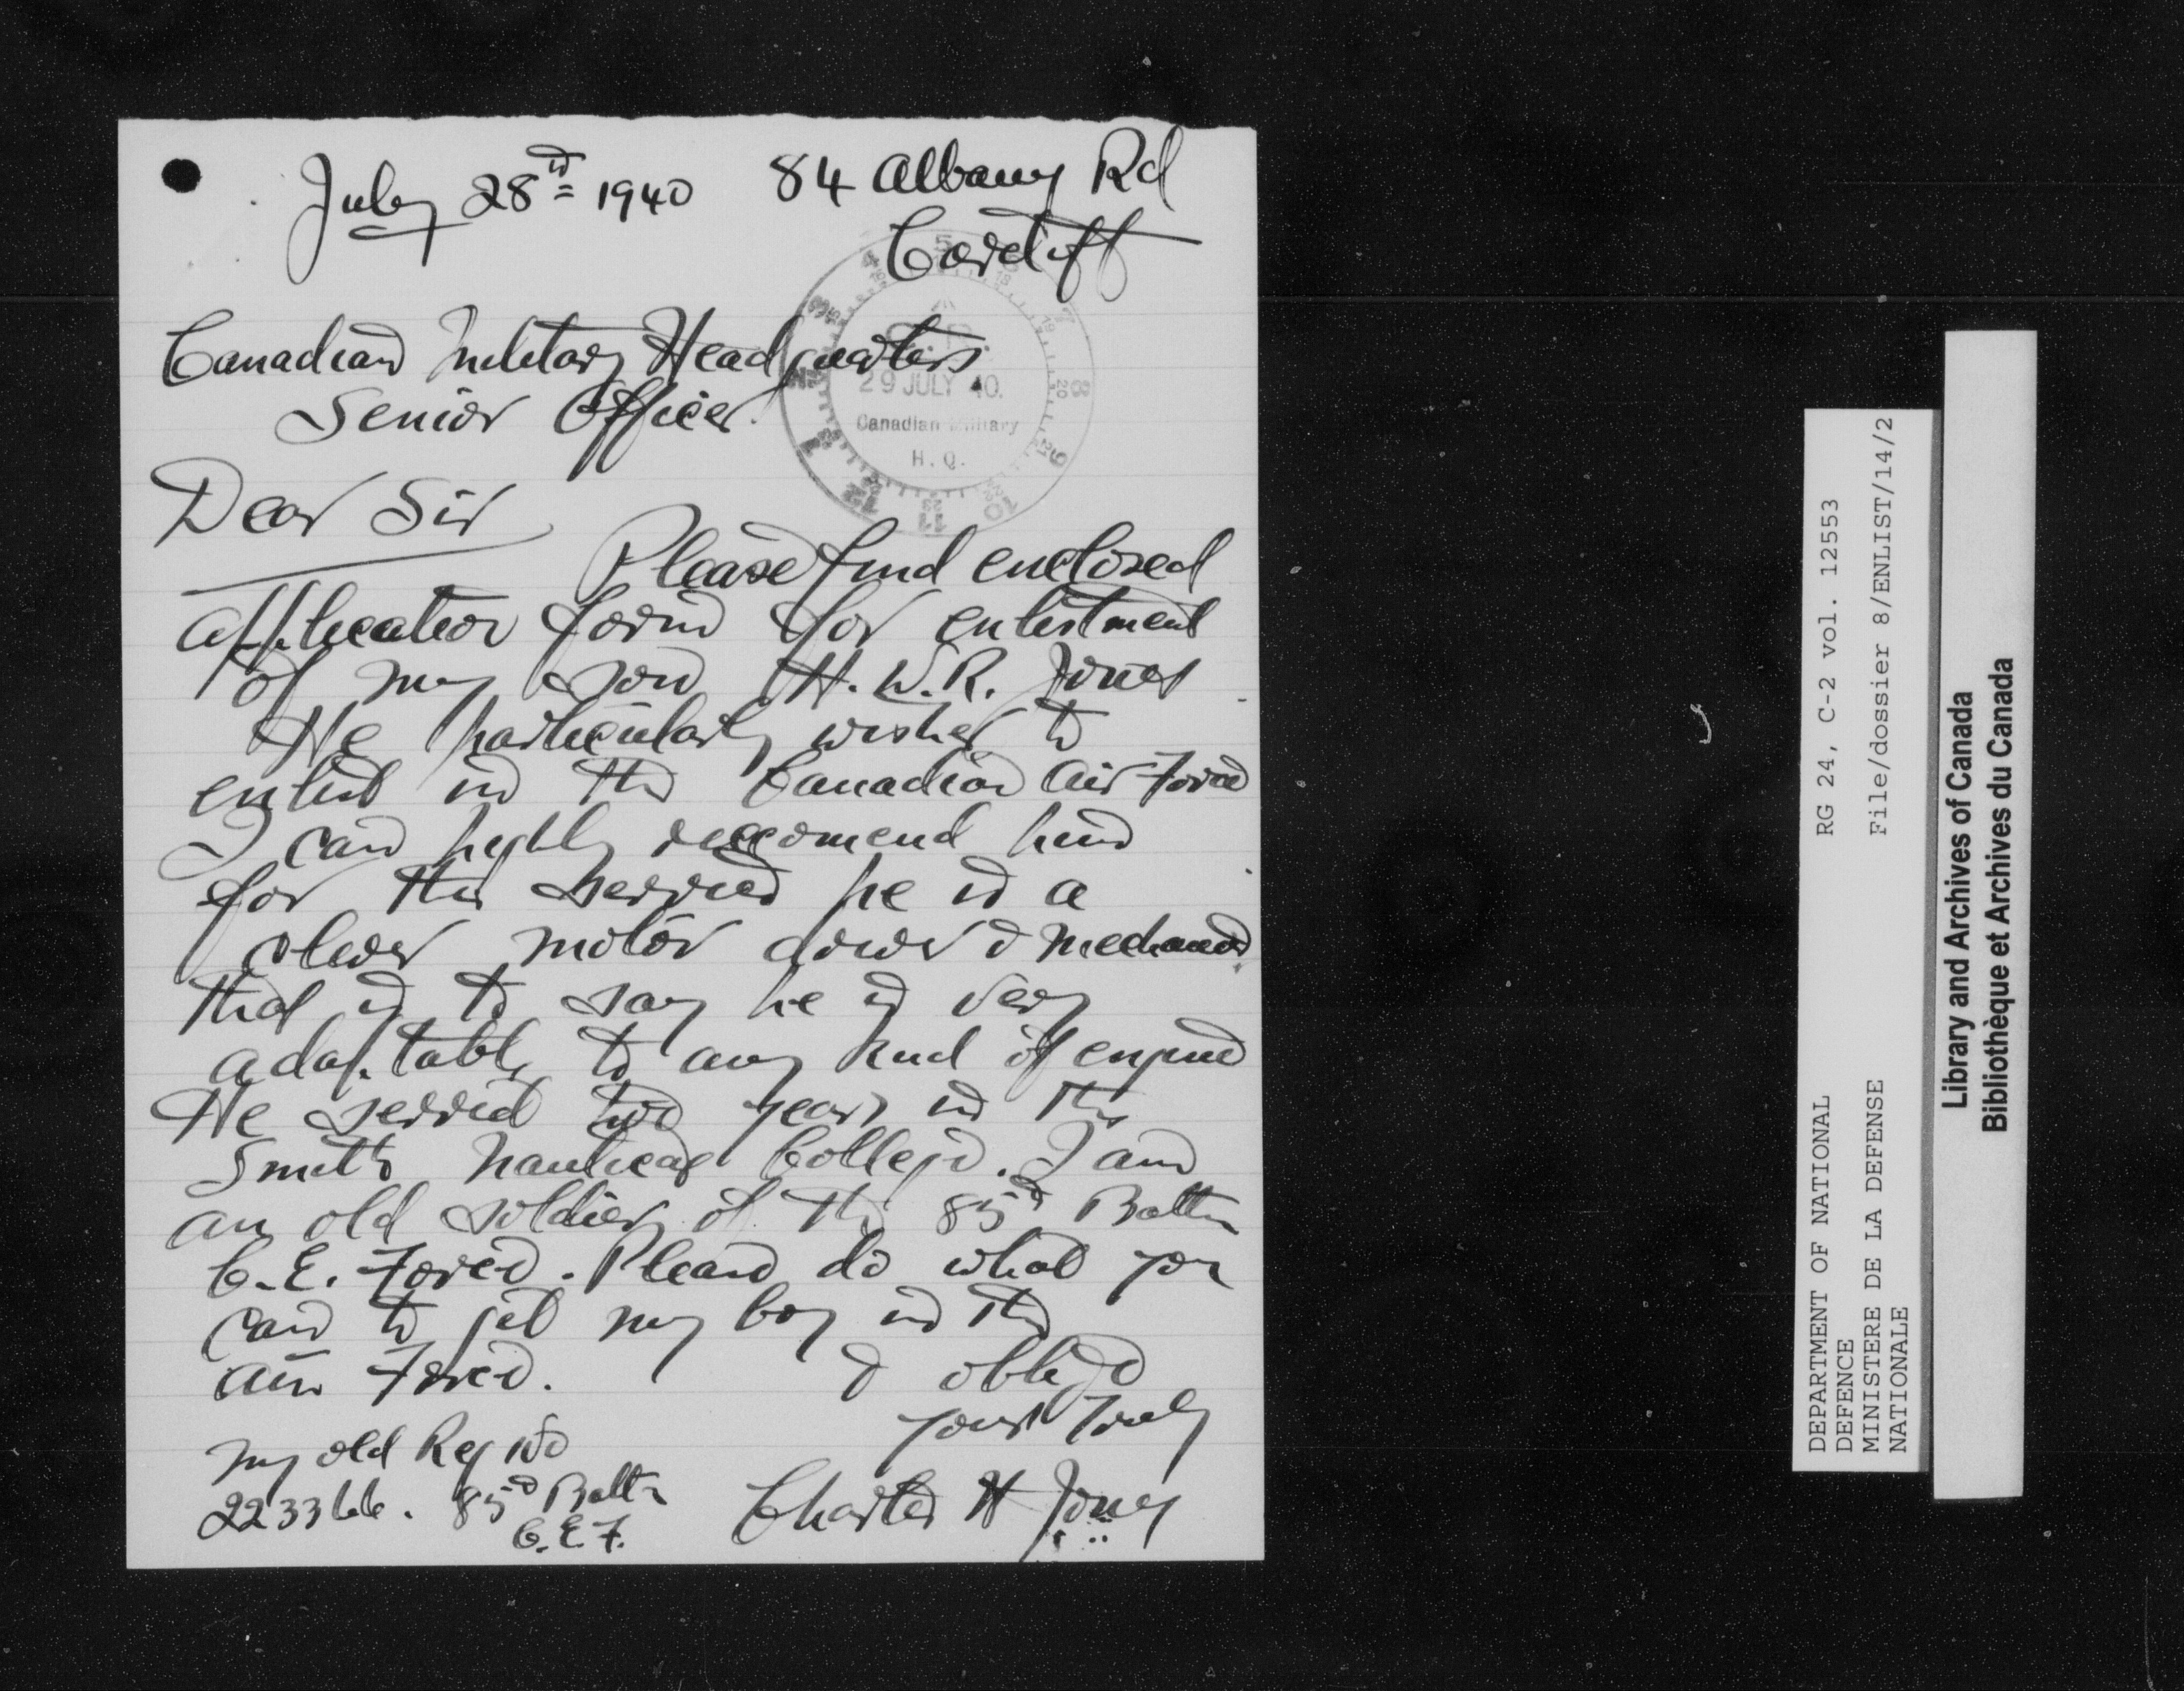 July 28th 1940 84 Albany Rd
Cardiff
Canadian Military Headquarters
Senior Officer.
29 JULY 40.
Canadian Military
H. Q.
Dear Sir
Please find enclosed
application form for enlistment
of my son H. W. R. Jones
He particularly wishes to
enlist in the Canadian Air Force
I can highly reccomend him
for this service he is a
clever motor driver & mechanic
that is to say he is very
adaptable to any kind of engine
He served two years in the
Smith Nautical College. I am
an old soldier of the 85th Battn
C. E. Force. Please do what you
can to get my boy in the
air Force. & oblige
yours Truly
my old Reg No
223366. 85th Battn
C. E. F.
Charles H Jones
RG 24, C-2 vol. 12553
File/dossier 8/ENLIST/14/2
DEPARTMENT OF NATIONAL
DEFENCE
MINISTERE DE LA DEFENSE
NATIONALE
Library and Archives of Canada
Bibliothèque et Archives du Canada